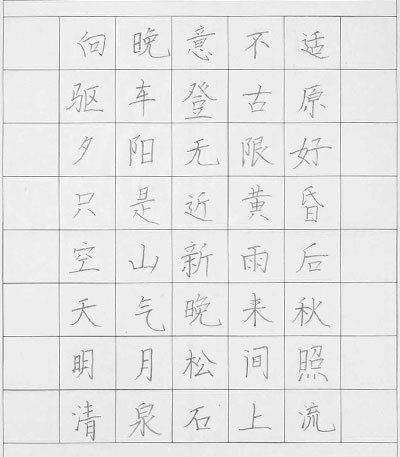 向晚意不适
驱车登古原
夕阳无限好
只是近黄昏
空山新雨后
天气晚来秋
明月松间照
清泉石上流